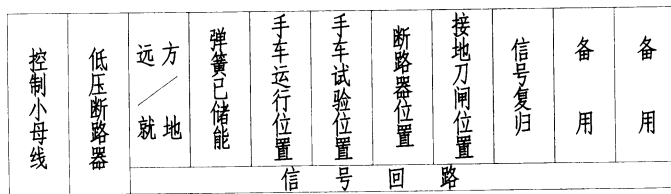 控制小母线
低压断路器
远方／就地
弹簧已储能
手车运行位置
手车试验位置
断路器位置
接地刀闸位置
信号复归
备用
备用
信号回路